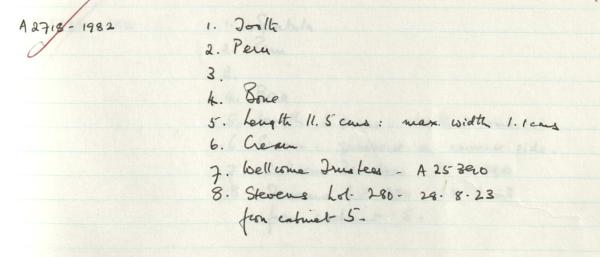 A 2718 - 1982
1. Tooth
2. Peru
3.
4. Bone
5. Length 11.5 cms : max width 1.1 cms
6. Cream
7. Wellcome Trustees - A 25390
8. Stevens Lot. 280 - 28. 8. 23
from cabinet 5.